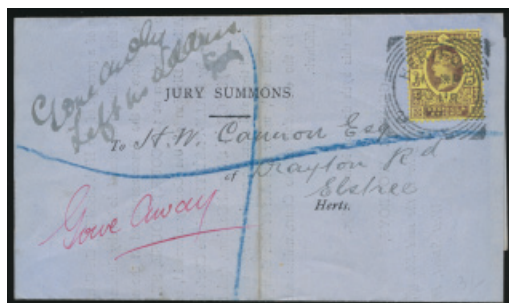 Gone away
Left no address.
JURY SUMMONS.
To H. W. Cannon Esq
of Drayton Rd
Elstree
Herts.
Gone Away